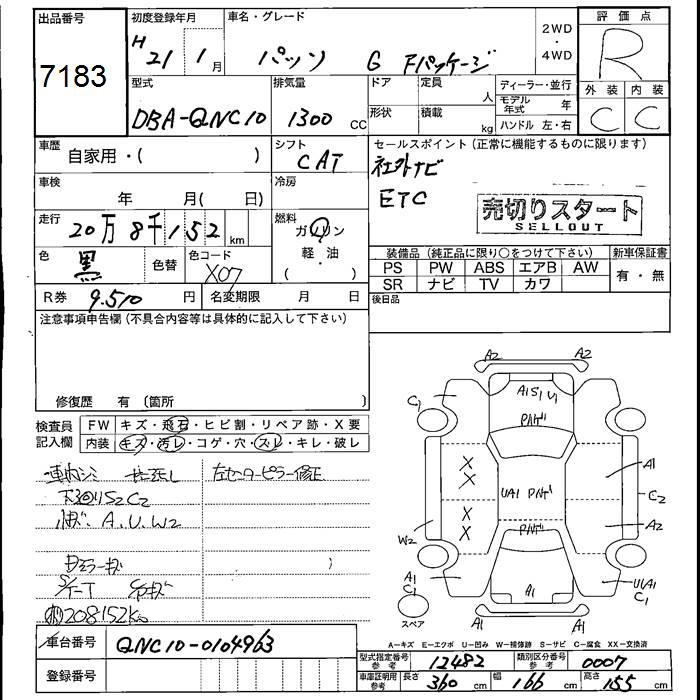 出品番号
7183
初度登録年月
H 21 1月
車名・グレード
パッソ G Fパッケージ
2WD
・
4WD
評価点
R
型式
DBA-QNC10
排気量
1300 CC
ドア
定員
人
形状
積載
kg
ディーラー・並行
モデル年式 年
ハンドル 左・右
外装 内装
C C
車歴
自家用・( )
シフト
CAT
車検
年 月( 日)
冷房
走行
20万8千152km
燃料
ガソリン
軽・油
( )
色
黒
色替
色コード
X07
R券 9,510円
名変期限 月 日
セールスポイント(正常に機能するものに限ります)
社外ナビ
ETC
売切りスタート
SELLOUT
装備品(純正品に限り○をつけて下さい)
PS PW ABS エアB AW
SR ナビ TV カワ
新車保証書
有・無
後日品
注意事項申告欄(不具合内容等は具体的に記入して下さい)
修復歴 有 (箇所 )
検査員記入欄
FW キズ・飛石・ヒビ割・リペア跡・X要
内装 キズ・汚レ・コゲ・穴・スレ・キレ・破レ
車内シミ
左センターピラー修正
下廻りS2C2
A.U.W2
S/F-T
208152km
A2 A2
C1 A1S1U1 C1
パネ
X X
X X
UA1
A1
C2
A2
W2
A1
C1
A1
U1A1
C1
スペア
A1 A1
A=キズ E=エクボ U=凹み W=補修跡 S=サビ C=腐食 XX=交換済
車台番号 QNC10-0104963
登録番号
型式指定番号参考 12482
類別区分番号参考 0007
車庫証明用参考 長さ 360cm 幅 166cm 高さ 155cm